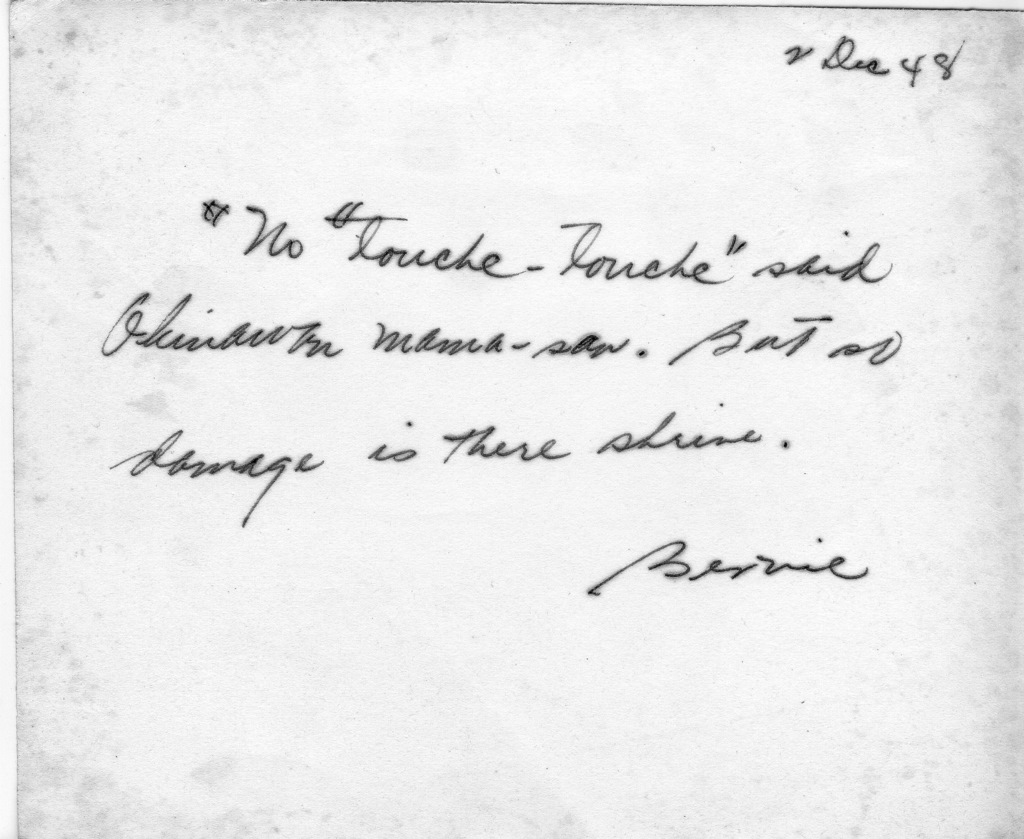 2 Dec 48
"No "touche-touche" said
Okinawan mama-san. But so
damage is there shrine.
Bernie